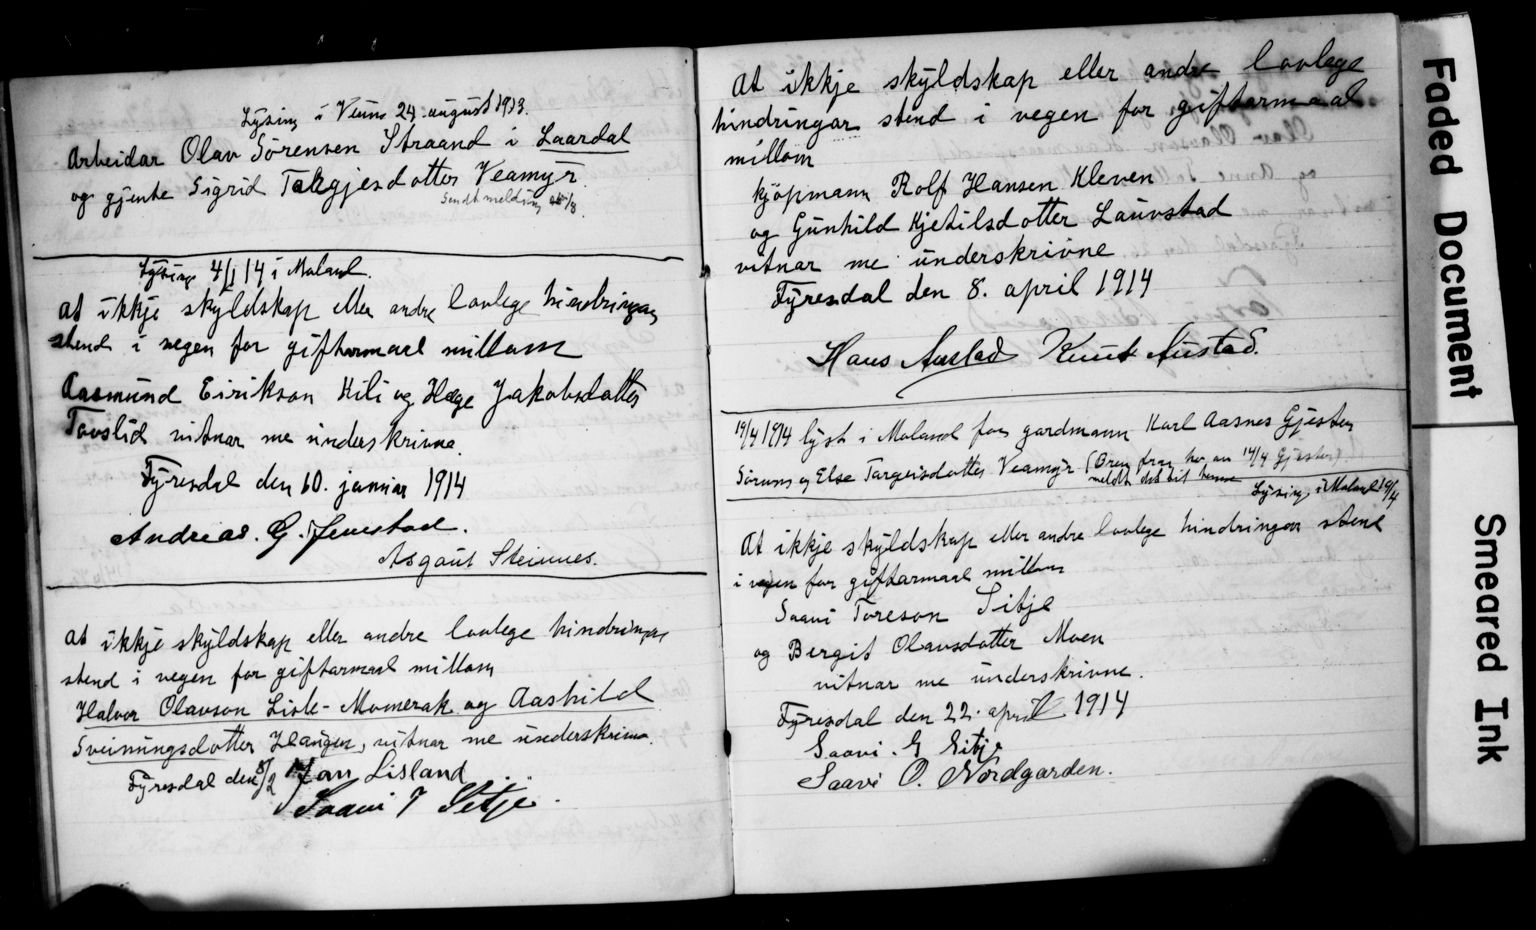 Lysing i Veum 24. august 1913.
Arbeidar Olav Sörensen Straand i Laardal
og gjente Sigrid Targjesdotter Veamyr.
Sendt melding /8.
Lysing 4/1 14 i Moland.
At ikkje skyldskap eller andre lovlege hindringar
stend i vegen for giftarmaal millom
Aasmund Eirikson Kili og Hæge Jakobsdotter
Tovslid vitnar me underskrivne.
Fyresdal den 10. januar 1914
Andreas. G. Jenstad.
Asgaut Steinnes.
At ikkje skyldskap eller andre lovlege hindringar
stend i vegen for giftarmaal millom
Halvor Olavson Lisle-Momerak og Aashild
Sveinungsdotter Haugen, vitnar me underskrivne.
Fyresdal den 8/2 Jon Lisland
Saavi T Sitje.
At ikkje skyldskap eller andre lovlege
hindringar stend i vegen for giftarmaal
millom
kjöpmann Rolf Hansen Kleven
og Gunhild Kjetilsdotter Lauvstad
vitnar me underskrivne
Fyresdal den 8. april 1914
Hans Austad Knut Austad.
19/4 1914 lyst i Moland for gardmann Karl Aasnes Gjesten
Sörum og Else Targeirsdotter Veamyr (Brev fraa ho av 14/4 Gjesten).
meldt det til henne
Lysing i Moland 19/4
At ikkje skyldskap eller andre lovlege hindringar stend
i vegen for giftarmaal millom
Saavi Toreson Sitje
og Bergit Olavsdotter Moen
vitnar me underskrivne.
Fyresdal den 22. april 1914
Saavi. G Sitje
Saavi O. Nordgarden.
Faded Document
Smeared Ink